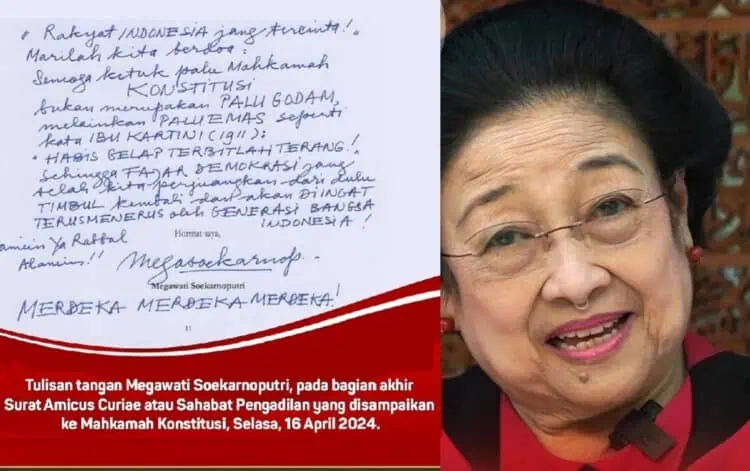 " Rakyat INDONESIA jang tercinta!.
Marilah kita berdoa:
Semoga ketuk palu Mahkamah
KONSTITUSI
bukan merupakan PALU GODAM,
melainkan PALU EMAS seperti
kata IBU KARTINI (1911):
" HABIS GELAP TERBITLAH TERANG!.
Sehingga FAJAR DEMOKRASI jang
telah kita perjuangkan dari dulu
TIMBUL kembali dan akan DIINGAT
TERUSMENERUS oleh GENERASI BANGSA
INDONESIA!
Hormat saya,
amien Ya Rabbal
Alamien!!
Megawati Soekarnoputri
MERDEKA MERDEKA MERDEKA!
11
Tulisan tangan Megawati Soekarnoputri, pada bagian akhir
Surat Amicus Curiae atau Sahabat Pengadilan yang disampaikan
ke Mahkamah Konstitusi, Selasa, 16 April 2024.